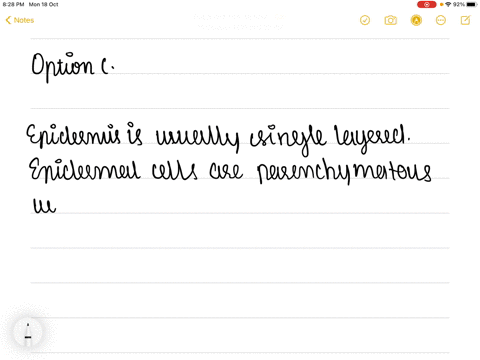 8:28 PM Mon 18 Oct
92%
Notes
Option C.
Epidermis is usually single layered.
Epidermal cells are parenchymatous